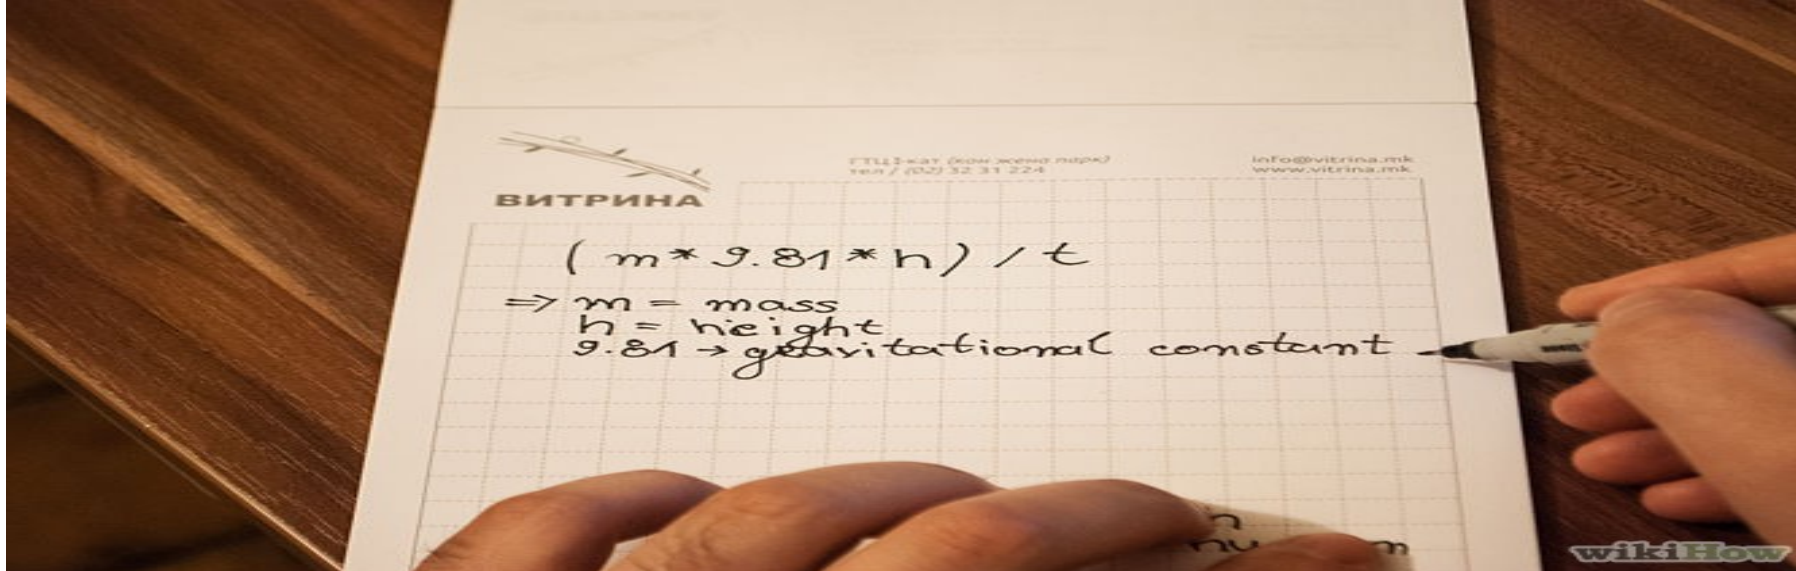 ВИТРИНА
ГТЦ I-кат (кон жена парк)
тел / (02) 32 31 224
info@vitrina.mk
www.vitrina.mk
( m * 9.81 * h ) / t
=> m = mass
h = height
9.81 → gravitational constant
wikiHow